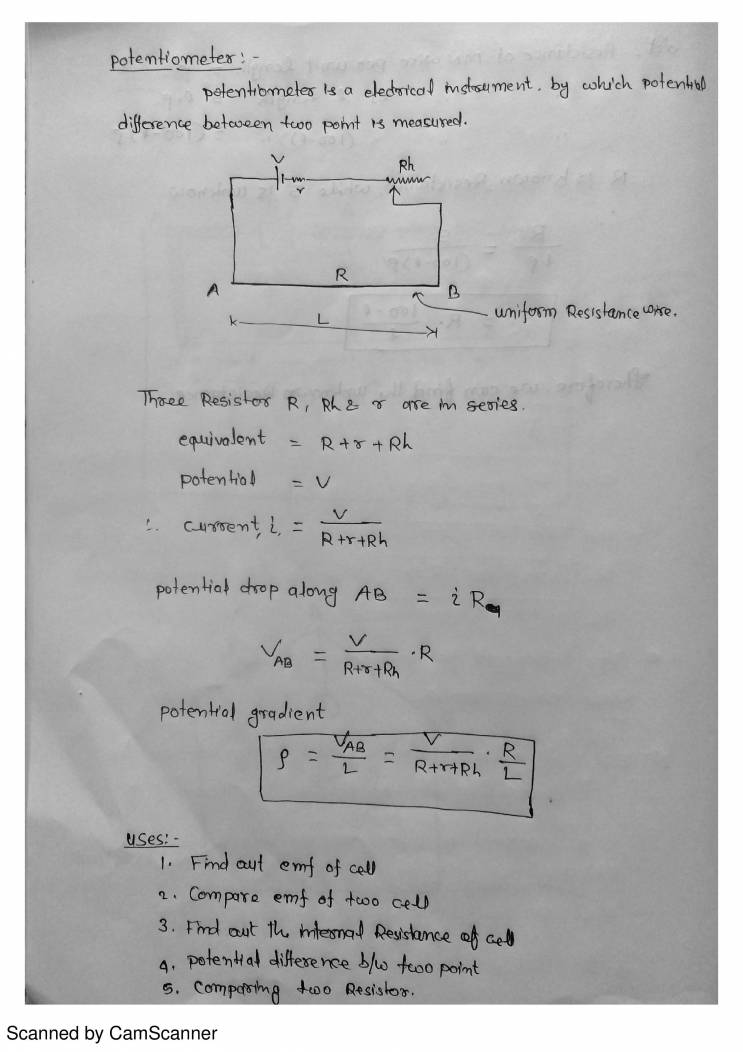 potentiometer :-
potentiometer is a eledrical instrument. by which potential
difference between two point is measured.
V
r
Rh
R
A
B
L
uniform Resistance wire.
Three Resistor R, Rh & r are in series.
equivalent = R+r+Rh
potential = V
∴ current, i, = V / R+r+Rh
potential drop along AB = i R
V_AB = V / R+r+Rh · R
potential gradient
ρ = V_AB / L = V / R+r+Rh · R / L
uses:-
1. Find out emf of cell
2. Compare emf of two cell
3. Find out the internal Resistance of cell
4. potential difference b/w two point
5. Comparing two Resistor.
Scanned by CamScanner